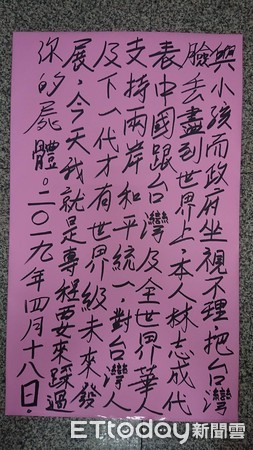 與小孩而政府坐視不理,把台灣
臉丟盡到世界上,本人林志成代
表中國跟台灣及全世界華人
支持兩岸和平統一,對台灣人
及下一代才有世界級未來發
展,今天我就是專程要來踩過
你的屍體。二〇一九年四月十八日.
ETtoday新聞雲